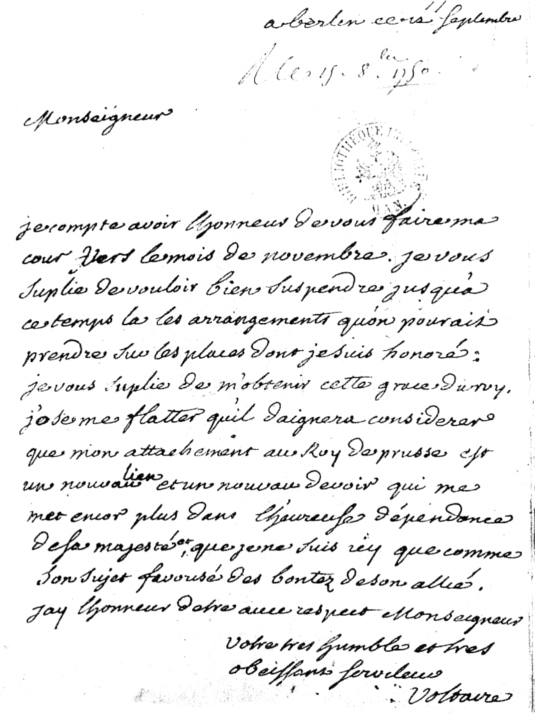 a berlin ce 15 septembre
R le 15. 8.bre 1750
Monseigneur
BIBLIOTHEQUE
je compte avoir lhonneur de vous faire ma
cour vers le mois de novembre. je vous
suplie de vouloir bien suspendre jusqu'à
ce temps la les arrangements qu'on pourait
prendre sur les places dont je suis honoré:
je vous suplie de m'obtenir cette grace du roy.
j'ose me flatter qu'il daignera considerer
que mon attachement au Roy de prusse est
un nouvau lien et un nouvau devoir qui me
met encor plus dans l'heureuse dépendance
de sa majesté, et que je ne suis icy que comme
son sujet favorisé des bontez de son allié.
jay lhonneur detre avec respect Monseigneur
votre tres humble et tres
obeissant serviteur
Voltaire